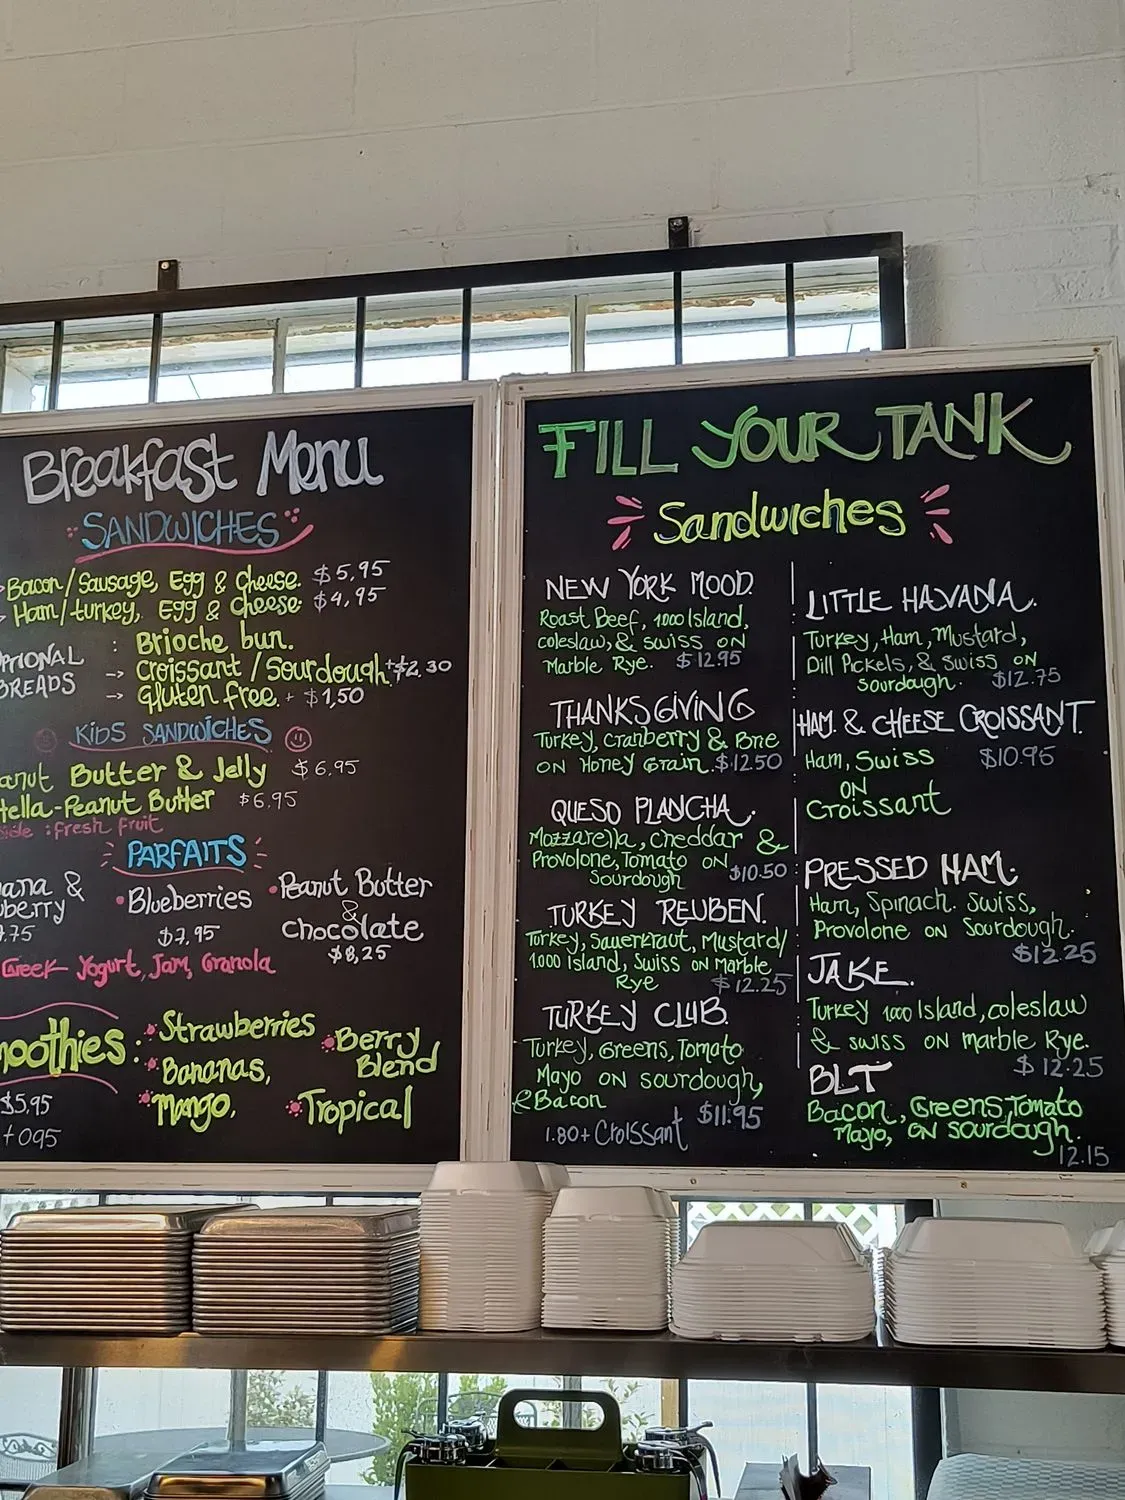 Breakfast Menu
SANDWICHES
Bacon/Sausage, Egg & Cheese. $5,95
Ham/turkey, Egg & Cheese. $4,95
BREADS
: Brioche bun.
-> Croissant/Sourdough +$2.30
-> Gluten free. + $1,50
KIDS SANDWICHES
Butter & Jelly $6,95
Peanut Butter $6,95
: fresh fruit
PARFAITS
&
• Blueberries
$7,95
• Peanut Butter
&
chocolate
$8,25
Greek Yogurt, Jam, Granola
:
$5,95
+095
Strawberries
Bananas,
Mango,
Berry
Blend
Tropical
FILL YOUR TANK
Sandwiches
NEW YORK MOOD.
Roast Beef, 1000 Island,
coleslaw, & Swiss ON
Marble Rye. $12.95
THANKSGIVING
Turkey, Cranberry & Brie
ON Honey Grain. $12.50
QUESO PLANCHA.
Mozzarella, Cheddar &
Provolone, Tomato ON
Sourdough $10.50
TURKEY REUBEN.
Turkey, Sauerkraut, Mustard/
1.000 Island, Swiss ON Marble
Rye $12.25
TURKEY CLUB.
Turkey, Greens, Tomato
Mayo ON Sourdough,
& Bacon $11.95
1.80+ Croissant
LITTLE HAVANA.
Turkey, Ham, Mustard,
Dill Pickels, & Swiss ON
Sourdough. $12.75
HAM. & CHEESE CROISSANT.
Ham, Swiss $10.95
ON
Croissant
PRESSED HAM.
Ham, Spinach. Swiss,
Provolone ON Sourdough.
$12.25
JAKE.
Turkey 1000 Island, coleslaw
& Swiss ON marble Rye.
$12.25
BLT
Bacon, Greens, Tomato
Mayo, ON Sourdough.
12.15